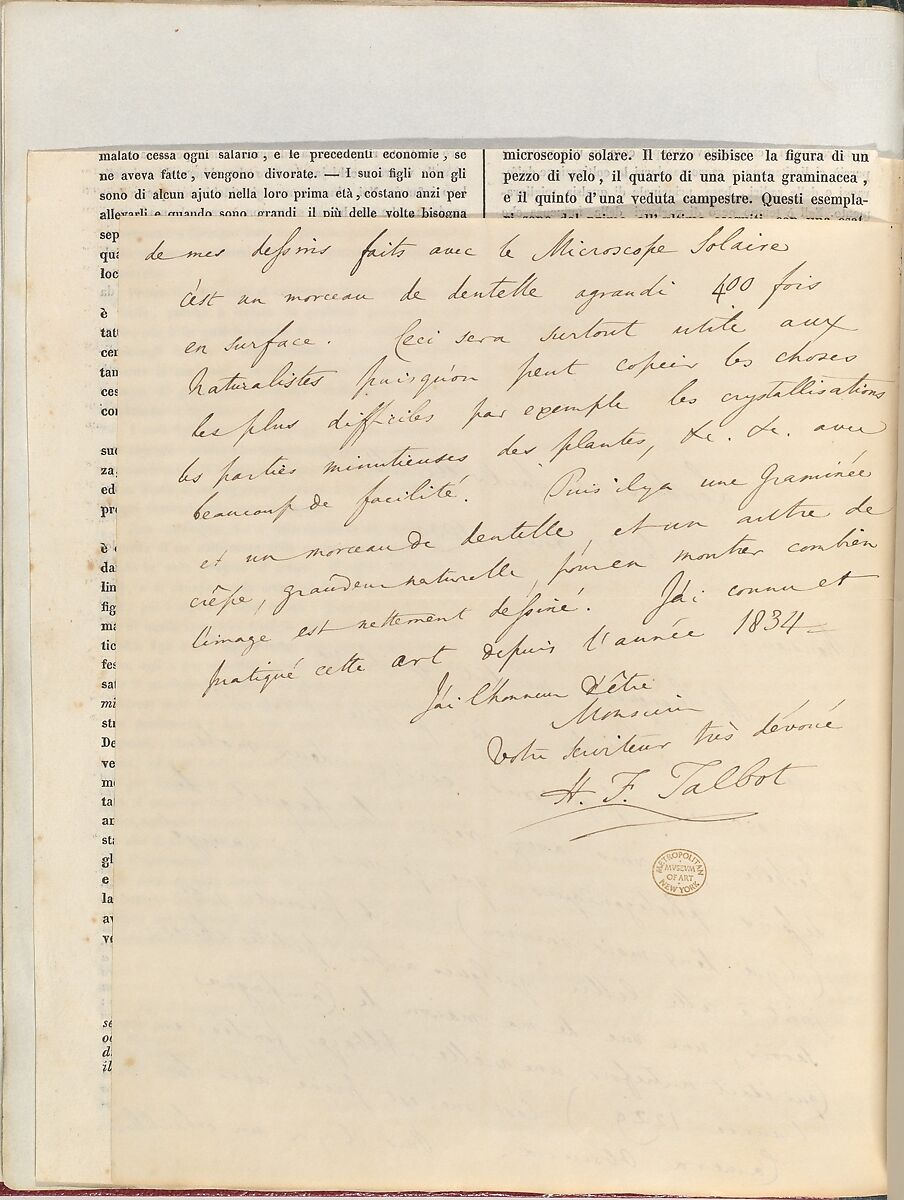 malato cessa ogni salario, e le precedenti economie, se
ne aveva fatte, vengono divorate. — I suoi figli non gli
sono di alcun ajuto nella loro prima età, costano anzi per
allevarli e quando sono grandi il più delle volte bisogna
microscopio solare. Il terzo esibisce la figura di un
pezzo di velo, il quarto di una pianta graminacea,
e il quinto d'una veduta campestre. Questi esempla-
de mes dessins faits avec le Microscope Solaire
c'est un morceau de dentelle agrandi 400 fois
en surface. Ceci sera surtout utile aux
Naturalistes puisqu'on peut copier les choses
les plus difficiles par exemple les crystallisations
les parties minutieuses des plantes, &c. &c. avec
beaucoup de facilité. Puis il y a une Graminée
et un morceau de dentelle, et un autre de
crêpe, grandeur naturelle, pour en montrer combien
l'image est nettement dessiné. J'ai connu et
pratiqué cette art depuis l'année 1834 —
J'ai l'honneur d'être
Monsieur
Votre serviteur très dévoué
H. F. Talbot
METROPOLITAN
MVSEVM
OF ART
NEW YORK